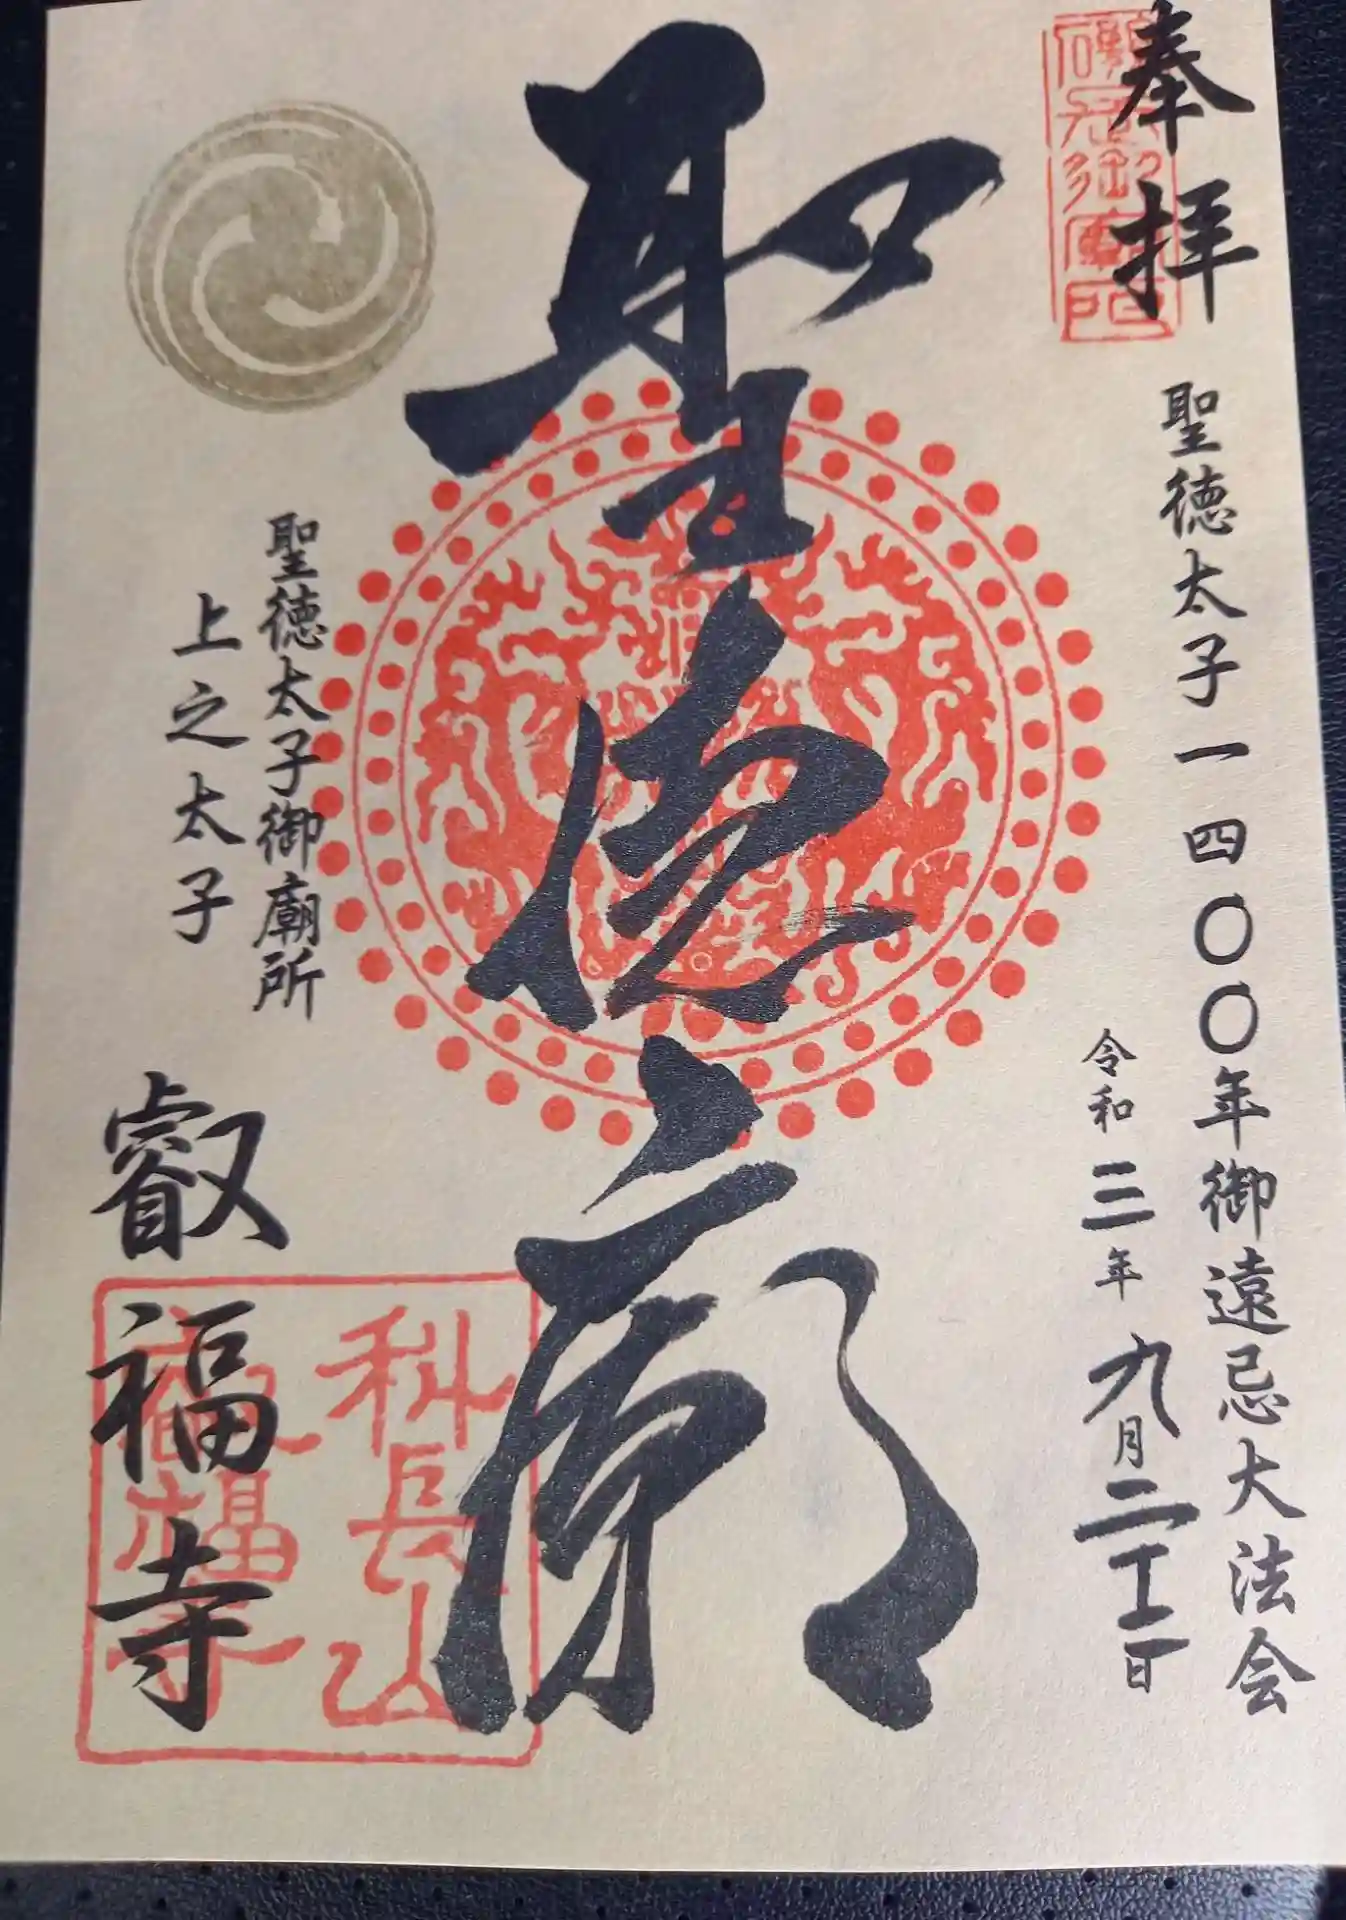 奉拝
聖徳太子一四〇〇年御遠忌大法会
令和三年九月二十一日
聖徳廟
聖徳太子御廟所
上之太子
叡福寺
科長山
叡福寺